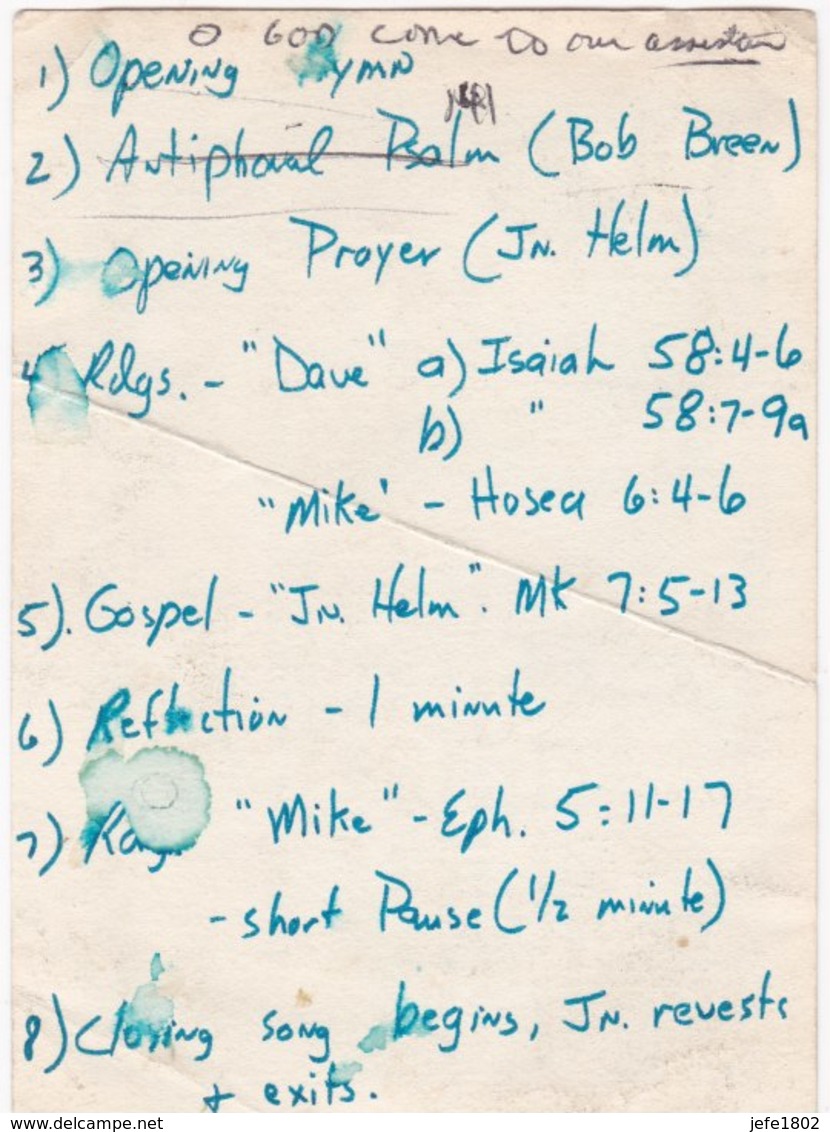 O God come to our
1) Opening Hymn
2) Antiphonal Psalm (Bob Breen)
3) Opening Prayer (Jn. Helm)
4) Rdgs. - "Dave" a) Isaiah 58:4-6
b) " 58:7-9a
"Mike" - Hosea 6:4-6
5). Gospel - "Jn. Helm". MK 7:5-13
6) Reflection - 1 minute
7) "Mike" - Eph. 5:11-17
- short Pause (1/2 minute)
8) Closing song begins, Jn. revests
+ exits.
www.delcampe.net
jefe1802